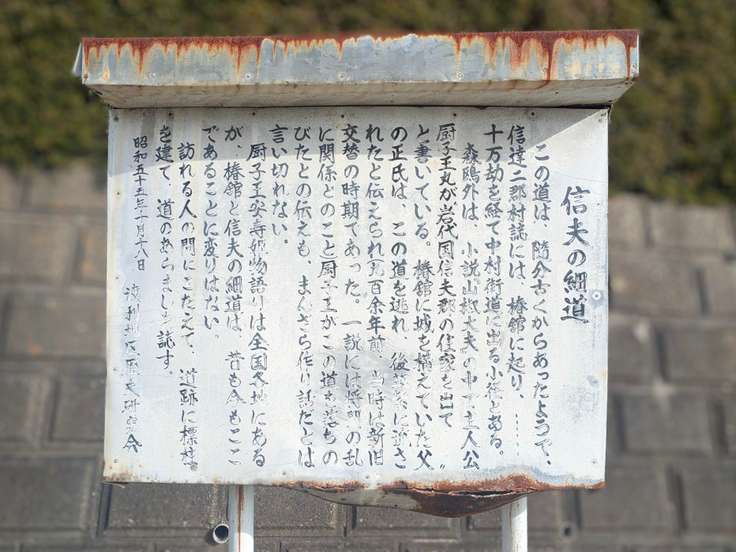 信夫の細道
この道は、随分古くからあったようで、
信達二郡村誌には、椿館に起り、……
十万劫を経て中村街道に出る小径とある。
森鴎外は、小説山椒大夫の中で主人公
厨子王丸が岩代国信夫郡の住家を出て〟
と書いている。椿館に城を構えていた父
の正氏は、この道を逃れ、後
れたと伝えられ百余年前、当時は新旧
交替の時期であった。一説には将門の乱
に関係とのこと厨子王がこの道を落ちの
びたとの伝えも、まんざら作り話だとは
言い切れない。
厨子王安寿姫物語りは全国各地にある
が、椿館と信夫の細道は、昔も今もここ
であることに変りはない。
訪れる人の問にこたえて、道跡に標柱
を建て、道のあらましを誌す。
昭和五十五年十月十八日
渡利地区歴史研究会